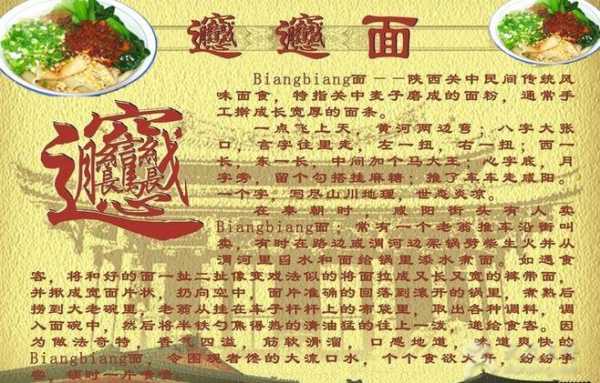 𰻞𰻞面
Biangbiang面－－陕西关中民间传统风
味面食，特指关中麦子磨成的面粉，通常手
工擀成长宽厚的面条。
一点飞上天，黄河两边弯；八字大张
口，言字往里走，左一扭，右一扭；西一
长，东一长，中间加个马大王；心字底，月
字旁，留个勾搭挂麻糖；推了车车走咸阳。
一个字，写尽山川地理，世态炎凉。
在秦朝时，咸阳街头有人卖
Biangbiang面；常有一个老翁推车沿街叫
卖，有时在路边或渭河边架锅劈柴生火并从
渭河里舀水和面给锅里添水煮面。如遇食
客，将和好的面一扯二扯像变戏法似的将面拉成又长又宽的裤带面，
并揪成宽面片状，扔向空中，面片准确的回落到滚开的锅里，煮熟后
捞到大老碗里，老翁从挂在车子杆杆上的布袋里，取出各种调料，调
入面碗中，然后将半铁勺焦得熟的清油猛的往上一泼，递给食客。因
为做法奇特，香气四溢，筋软滑溜，口感地道，味道爽快的
Biangbiang面，令围观者馋的大流口水，个个食欲大开，纷纷子
𰻞